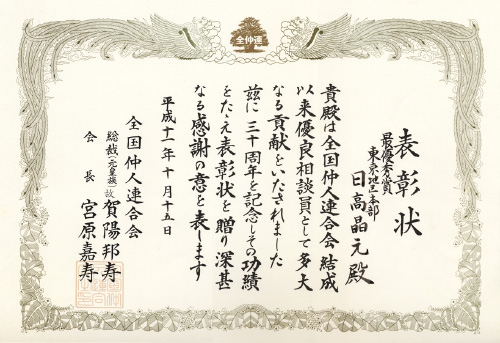 全仲連
表彰状
最優秀賞
東京地区本部
日高晶元殿
貴殿は全国仲人連合会結成
以来優良相談員として多大
なる貢献をいたされました
茲に三十周年を記念しその功績
をたゝえ表彰状を贈り深甚
なる感謝の意を表します
平成十一年十月十五日
全国仲人連合会
総裁(元皇族)故賀陽邦寿
会長宮原嘉寿